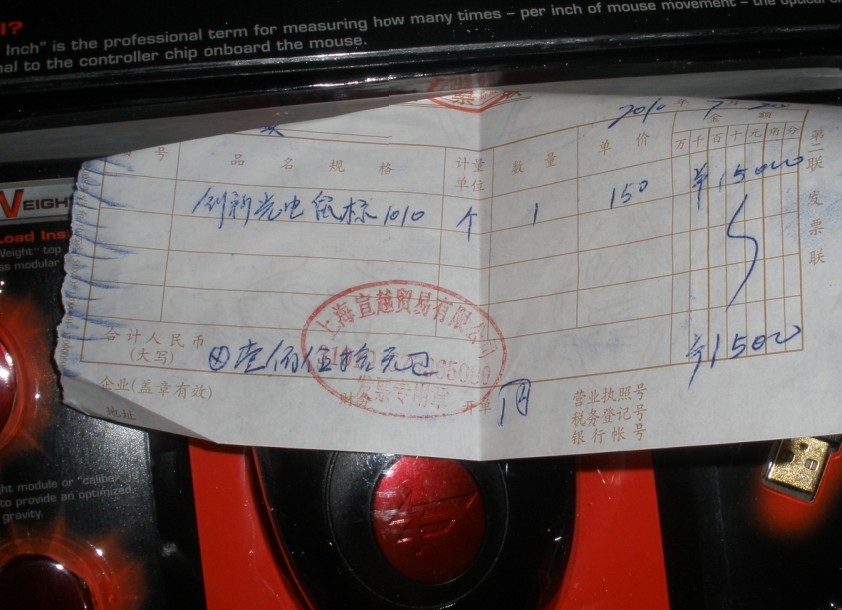 I?
Inch" is the professional term for measuring how many times – per inch of mouse movement – the optical
nal to the controller chip onboard the mouse.
2010 年 7 月
号 品名规格 计量单位 数量 单价 金额
万 千 百 十 元 角 分
第二联 发票联
创新光电鼠标1010 个 1 150 ¥15000
上海宣越贸易有限公司
发票专用章
合计人民币
(大写) ⊗壹佰伍拾元正 ¥15000
企业(盖章有效) 财务 开单
地址
营业执照号
税务登记号
银行帐号
WEIGHT
Load Ins
Weight" top
ss modular
ht module or "caliber
to provide an optimized
gravity.